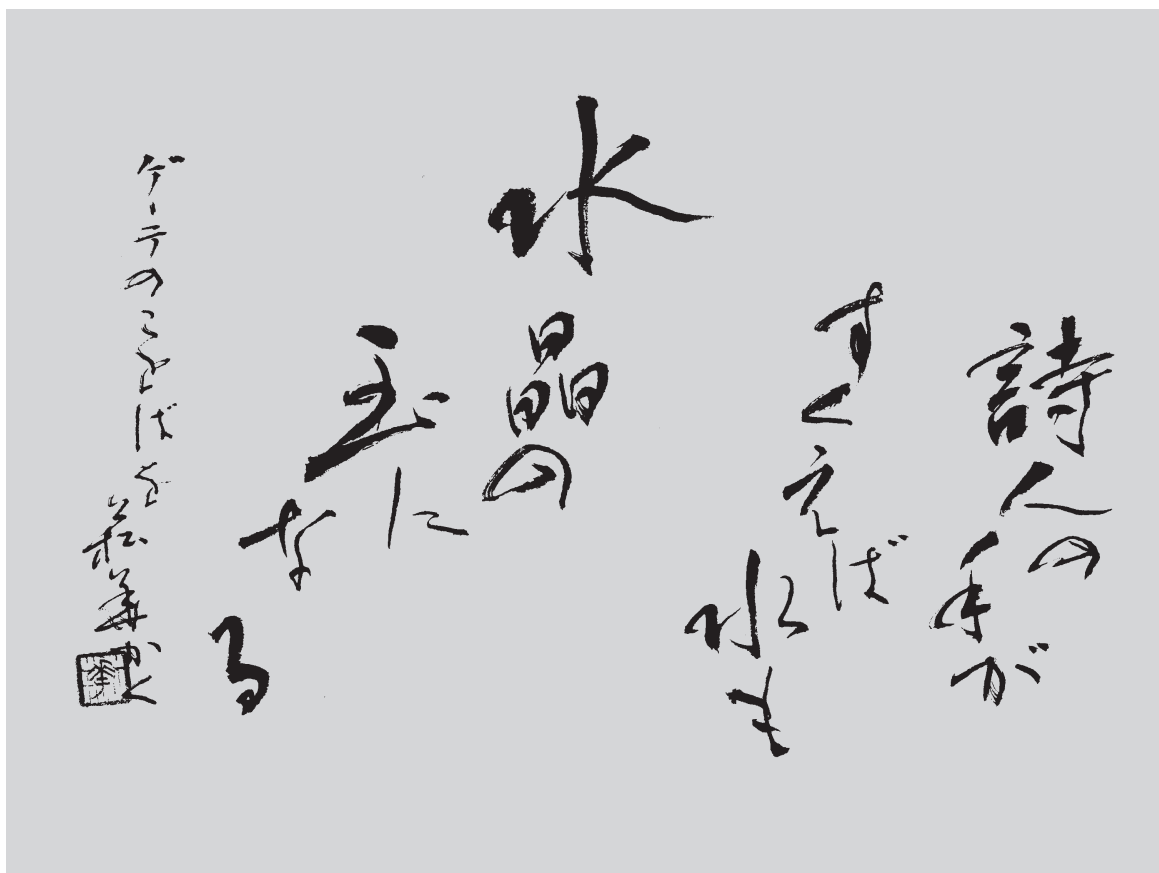 詩人の手が
すくえば水も
水晶の
玉になる
ゲーテのことばを
菘華かく